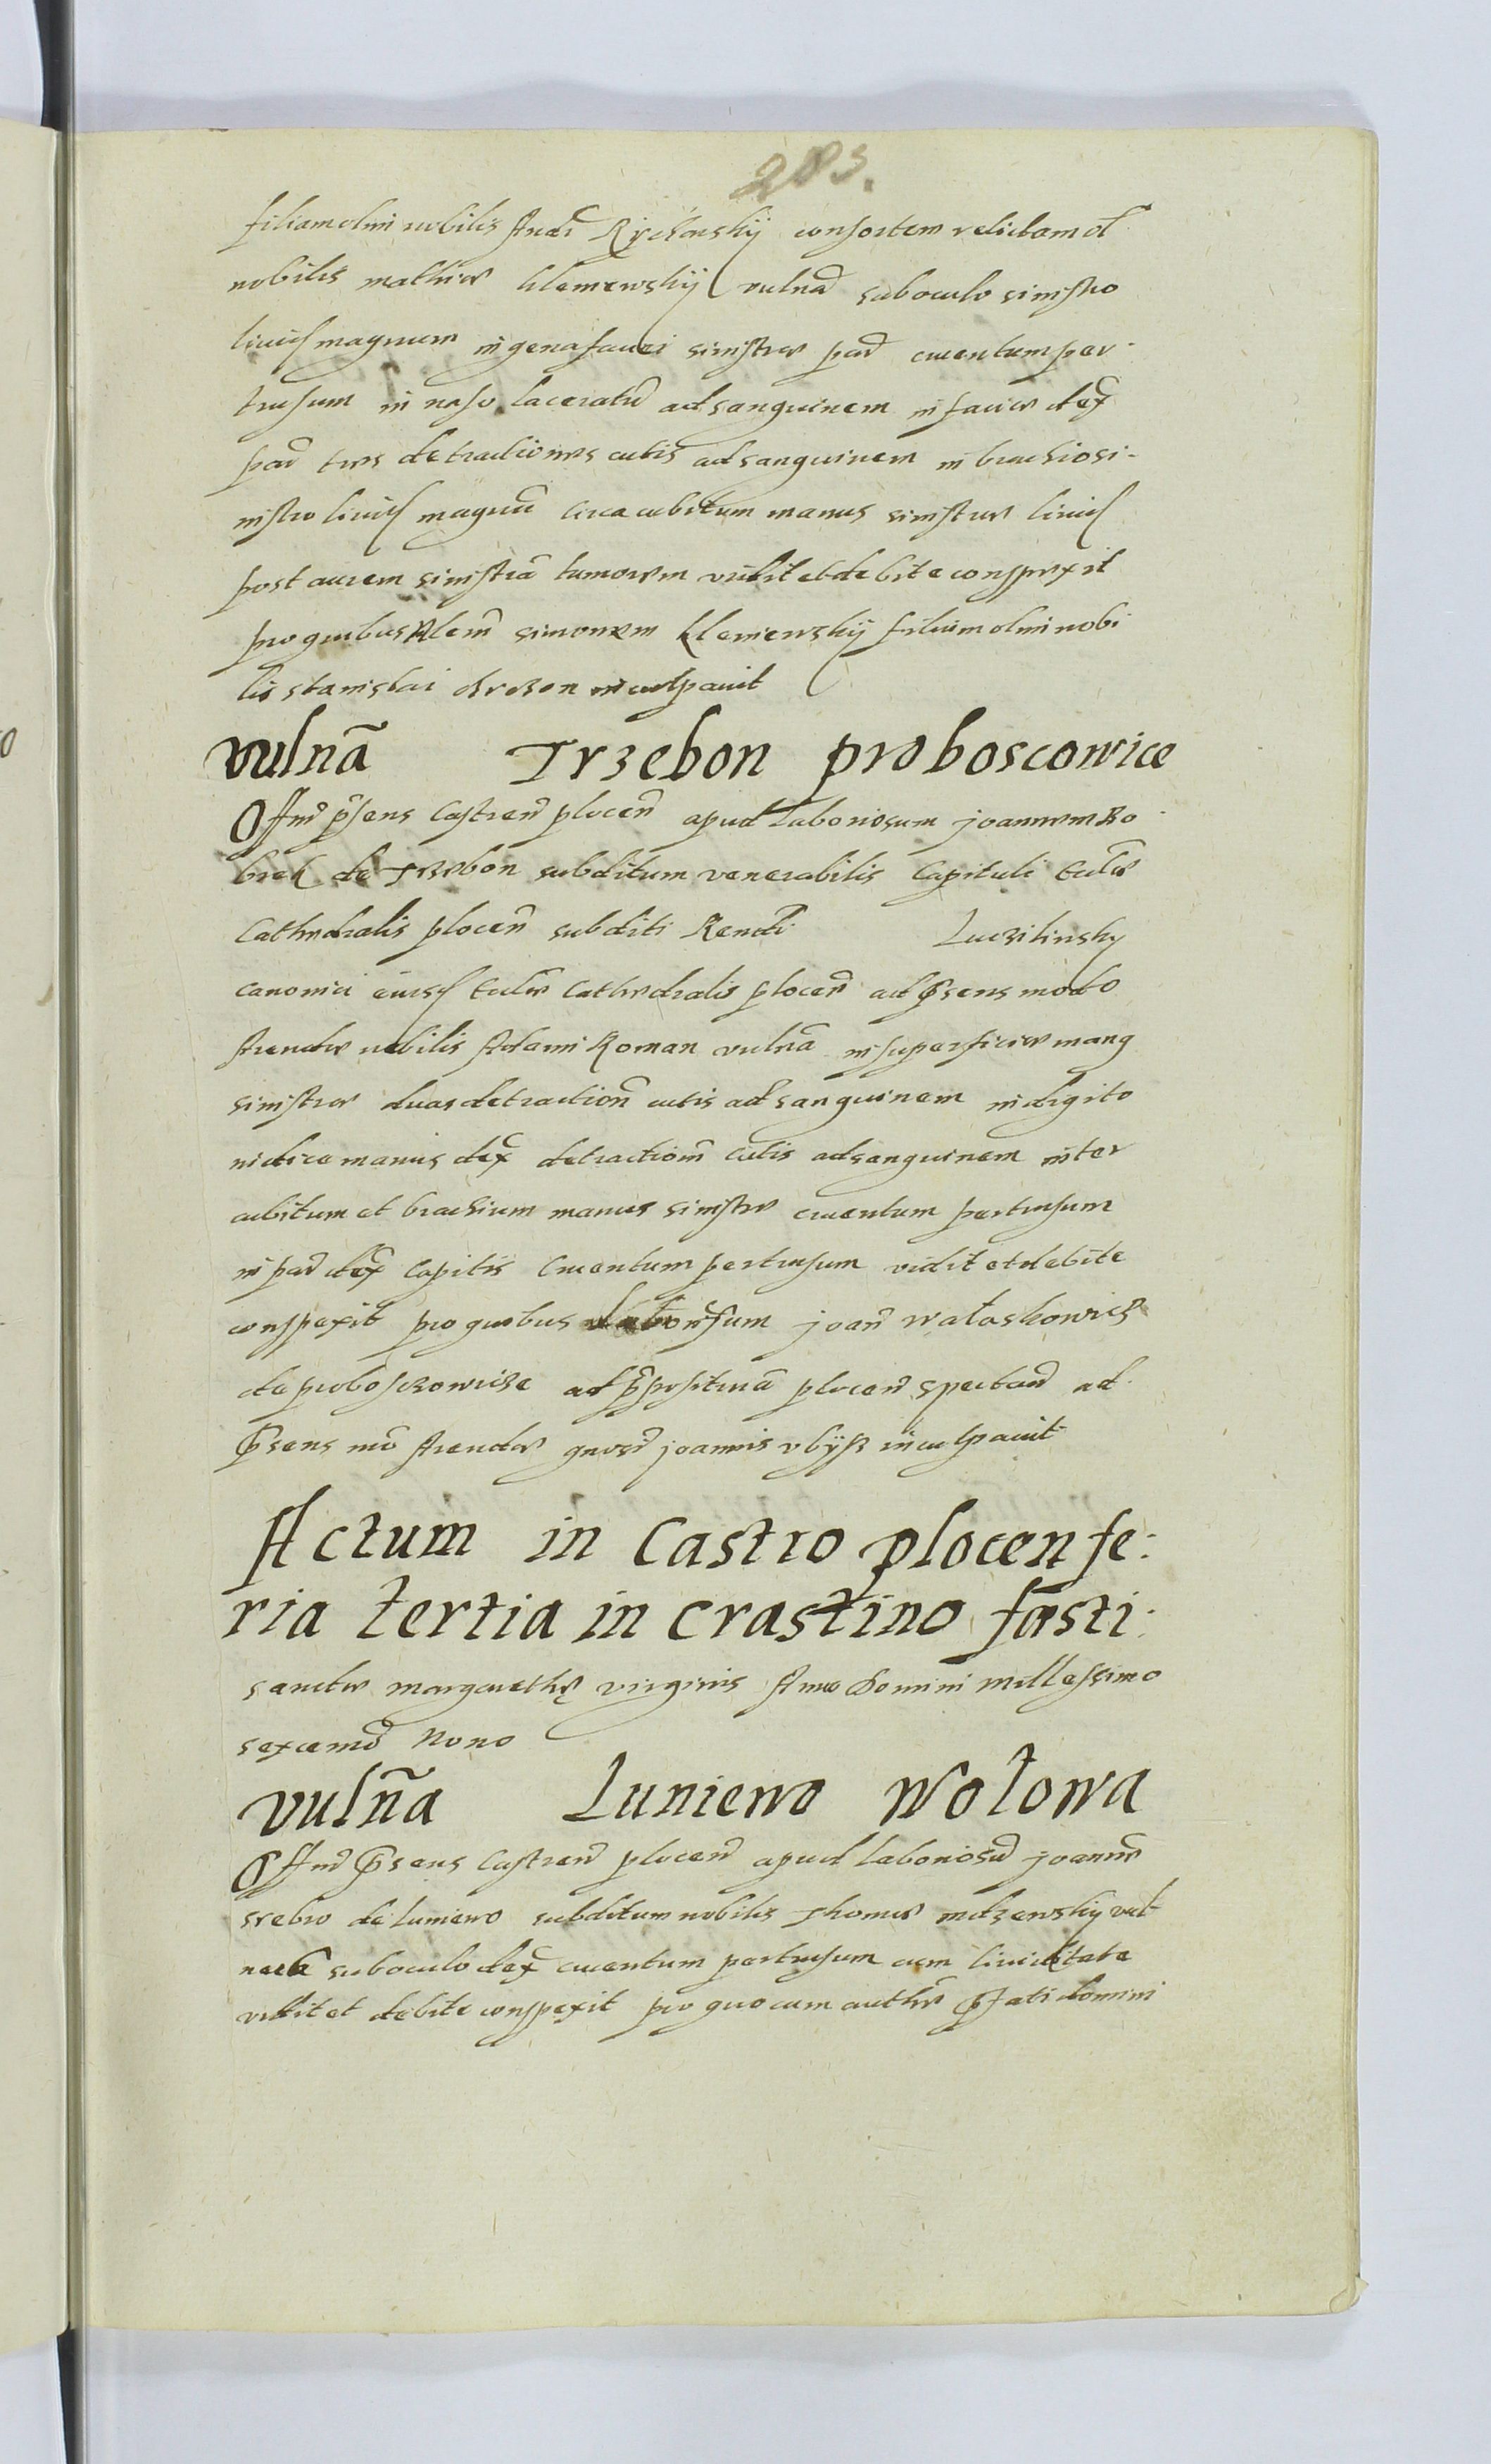 283.
filiam olim nobilis Andr Rychonskÿ consortem relictam ol
nobilis mathiæ klemewskÿ vulna sub oculo sinistro
livid magnum in gena fauci sinistræ par cruentum per-
trusum in naso laceratū ad sanguinem in faciæ dex
par tres detractiones cutis ad sanguinem in brachio si-
nistro livid magnū circa cubitum manus sinistræ livid
post aurem sinistrā tumorem vidit et debite conspexit
pro quibus Nlem simonem klemewskÿ filium olim nobi
lis stanislai inculpavit
vulnā Trzebon proboscowice
Offm p̄sens Castren plocen apud laboriosum joannem Ro
brek de Trzebon subditum venerabilis Capituli Eccliæ
Cathedralis plocen subditi Rendi Luczilinsky
canonici eiusd Eccliæ Cathedralis plocen ad p̄sens modo
Arendæ nobilis Adami Roman vulnā in superficiæ manq
sinistræ duas detractionē cutis ad sanguinem in digito
indice manus dex detractionē cutis ad sanguinem inter
cubitum et brachium manus sinistræ cruentum pertrusum
in par dex capitis cruentum pertrusum vidit et debite
conspexit pro quibus laboriosum joan wałaskowicz
de proboszcowicze ad p̄positurā plocen spectan ad
p̄sens mō Arendæ gnosi joannis vbÿß inculpavit
Actum in Castro plocen fe:
ria tertia in crastino fæsti:
sanctæ margarethę virginis Anno Domini millessimo
sexcenmo Nono
vulña Luniewo Wołowa
Offm p̄sens Castren plocen apud laboriosū joannē
srebro de luniewo subditum nobilis Thomæ mdzewsky vul
nera sub oculo dex cruentum pertrusum cum lividitate
vidit et debite conspexit pro quo eum auth p̄fati domini